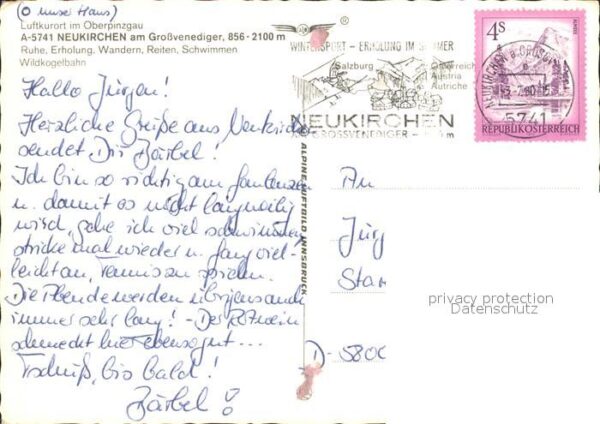 (O unser Haus)
Luftkurort im Oberpinzgau
A-5741 NEUKIRCHEN am Großvenediger, 856-2100 m
Ruhe, Erholung, Wandern, Reiten, Schwimmen
Wildkogelbahn
Hallo Jürgen!
Herzliche Grüße aus Neukirchen
sendet Dir Bärbel!
Ich bin so richtig am faulenzen
u. damit es nicht langweilig
wird, gehe ich viel schwimmen,
stricke mal wieder u. fang viel-
leicht an, Tennis zu spielen.
Die Abende werden übrigens auch
immer sehr lang! - Der Rotwein
schmeckt hier ebenso gut ...
Tschüß, bis bald!
Bärbel!
ALPINE LUFTBILD INNSBRUCK
®
WINTERSPORT - ERHOLUNG IM SOMMER
Salzburg
Österreich
Austria
Autriche
NEUKIRCHEN
GROSSVENEDIGER
m
4S
ALMSEE
NEUKIRCHEN a. GROSSV
5741
REPUBLIK ÖSTERREICH
An
Jürg
Star
D-580
privacy protection
Datenschutz